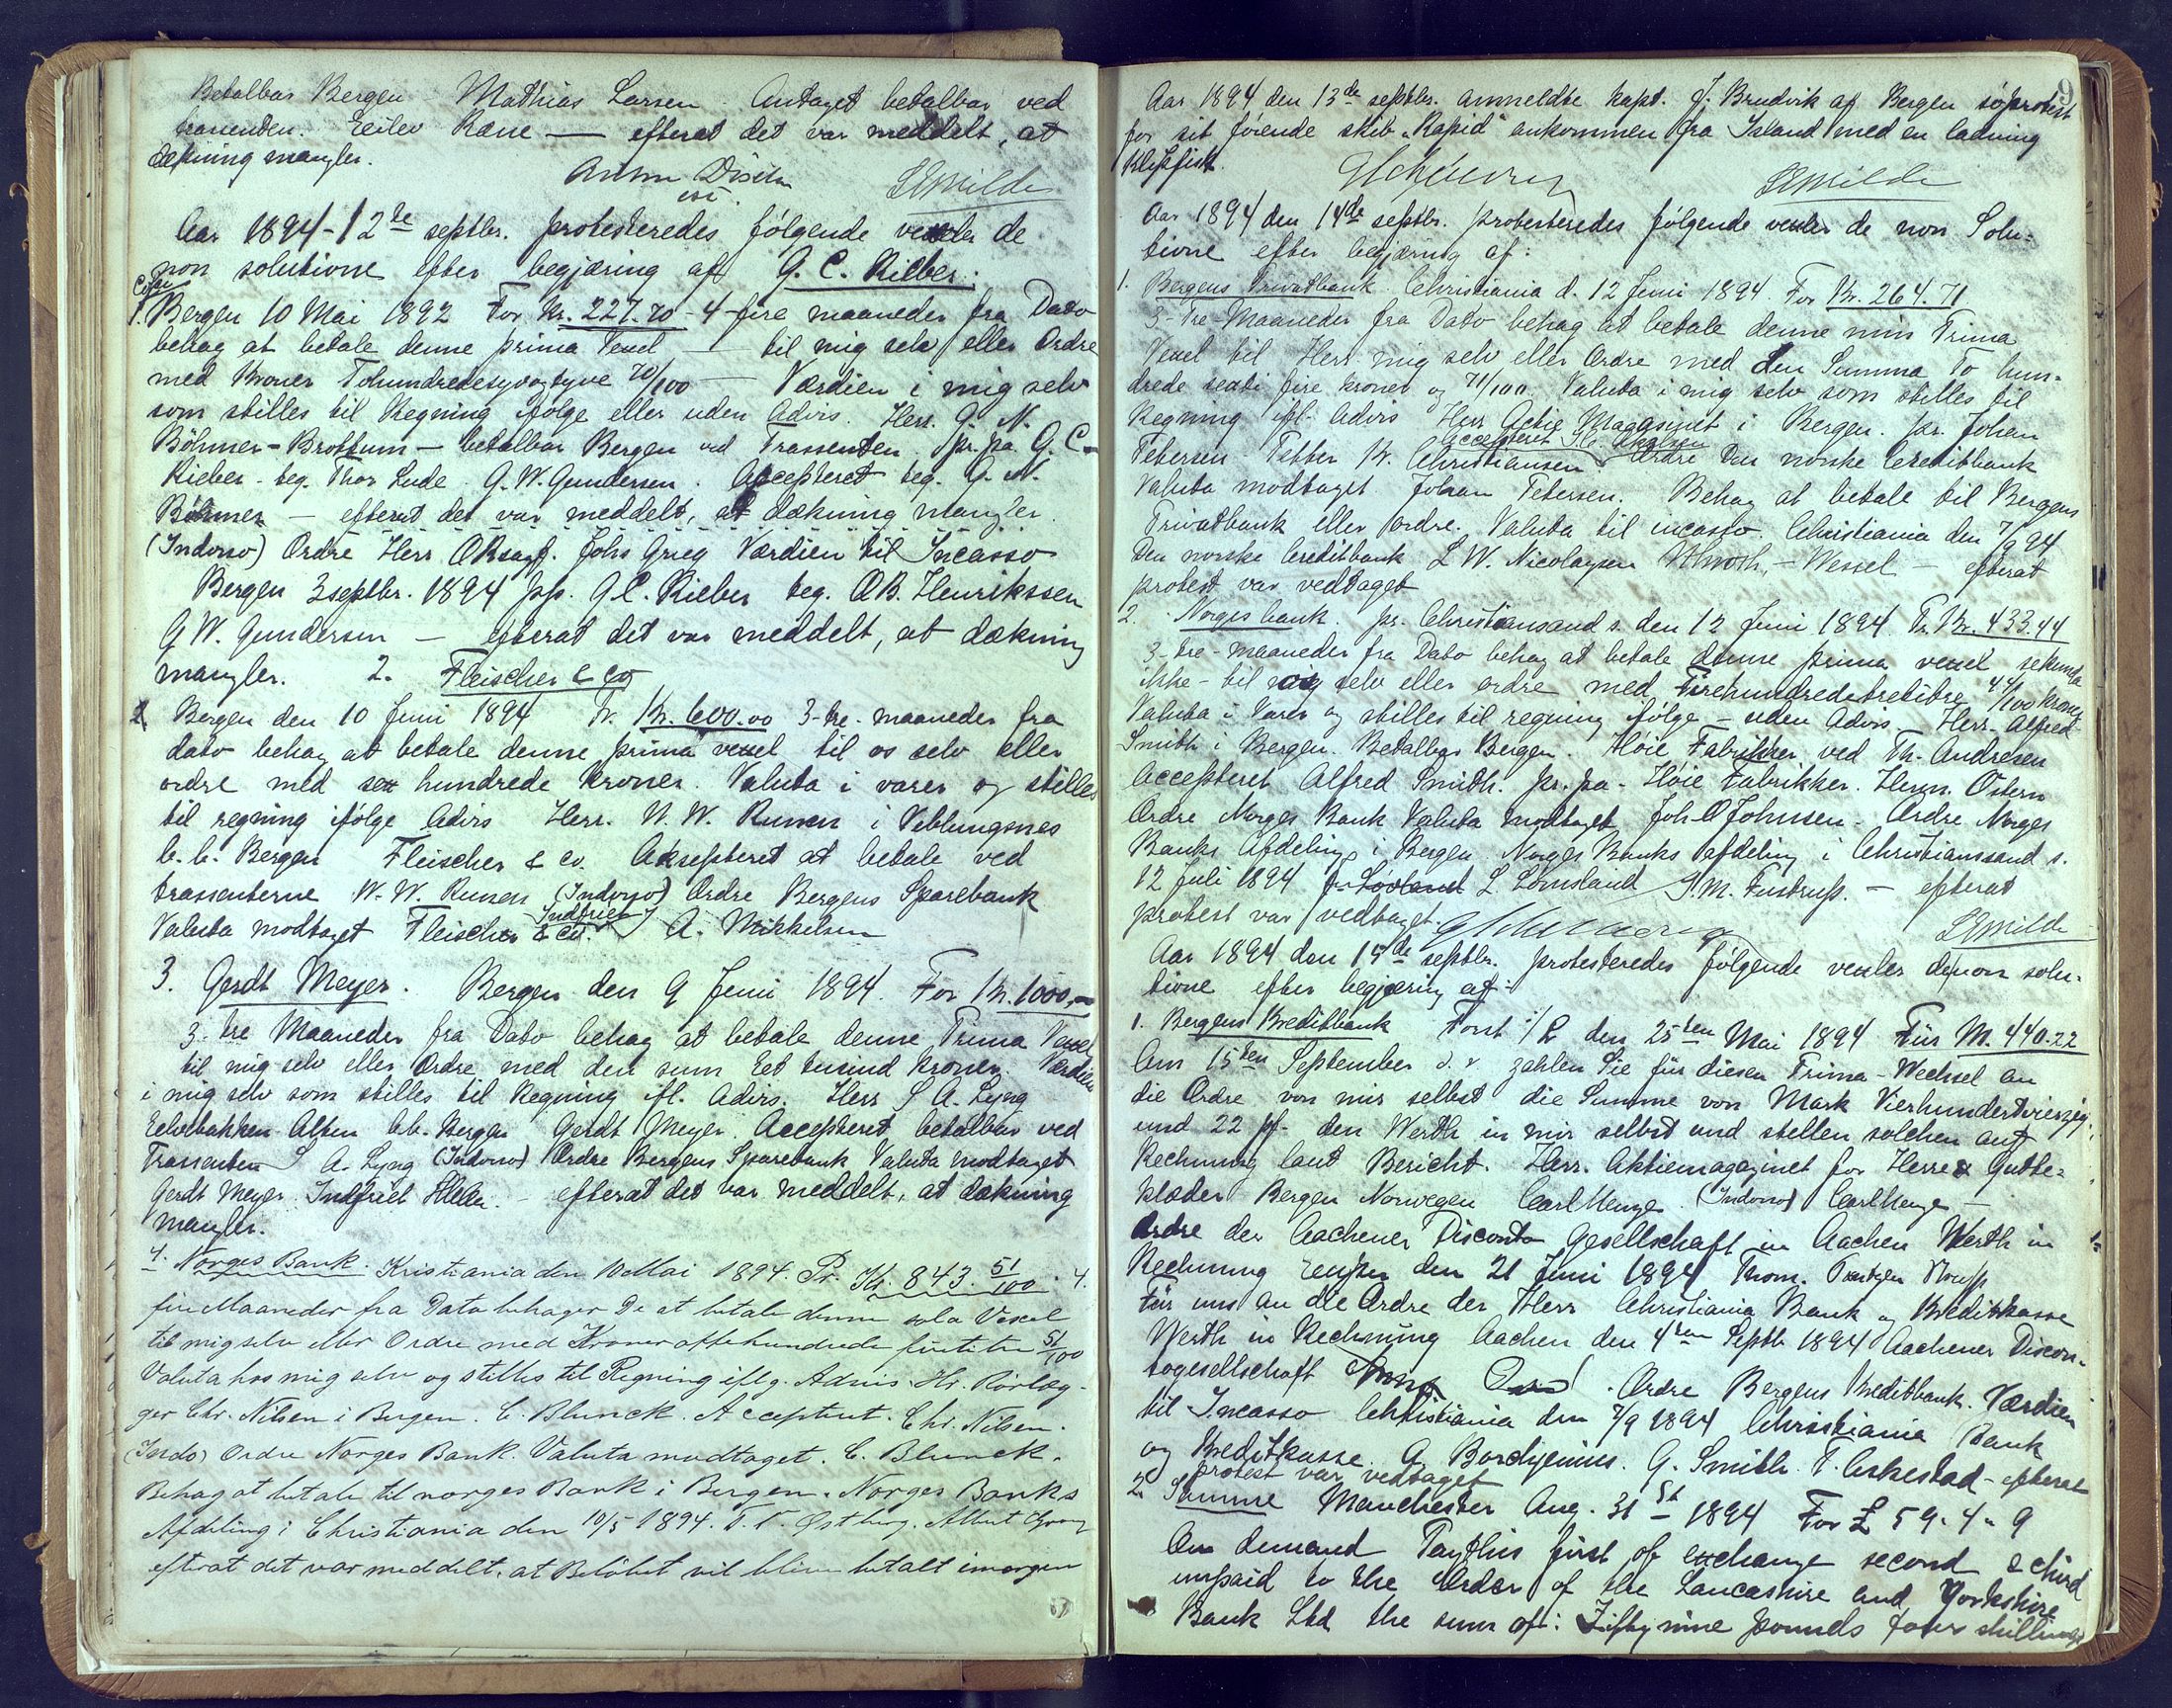 Betalbar Bergen Mathias Larsen. Antaget betalbar ved
trassenten. Eeilev Rane — efterat det var meddelt, at
dækning mangler.
Aar 1894 - 12te septbr. protesteredes følgende vexler de
non solutione efter begjæring af G. C. Rieber.
1. Bergen 10 Mai 1892 For Kr. 227.70 - 4 - fire maaneder fra Dato
behag at betale denne prima Vexel — til mig selv eller Ordre
med Kroner Tohundredesyvogtyve 70/100 — Værdien i mig selv
som stilles til Regning ifølge eller uden Advis. Herr. G. N.
Böhmer - Brottum - betalbar Bergen ved Trassenten, pr. pa. G. C.
Rieber - teg. Thor Lude. G. W. Gundersen. Accepteret teg. G. N.
Böhmer — efterat det var meddelt, at dækning mangler
(Indosso) Ordre Herr ORsagf. Johs Grieg Værdien til Incasso
Bergen 3 septbr. 1894 pp. G C. Rieber teg. O B. Henrikssen
G W. Gundersen — efterat det var meddelt, at dækning
mangler. 2. Fleischer & Co
Bergen den 10 Juni 1894 Kr. 600.00 3 - tre - maaneder fra
dato behag at betale denne prima vexel til os selv eller
ordre med sex hundrede kroner. Valuta i varer og stilles
til regning ifølge Advis Herr. N. W. Runen i Veblungsnes
b. b. Bergen Fleischer & Co. Aksepteret at betale ved
trassenterne N. W. Runen (Indosso) Ordre Bergens Sparebank
Valuta modtaget Fleischer & Co. Indfriet A. Mikkelsen
3. Gerdt Meyer. Bergen den 9 Juni 1894. For Kr. 1000,-
3 - tre Maaneder fra Dato behag at betale denne Prima Vexel
til mig selv eller Ordre med den sum Eet tusind kroner. Værdien
i mig selv som stilles til Regning ifl. Advis. Herr S A. Lyng
Eelvebakken Alten b.b. Bergen Gerdt Meyer. Accepteret betalbar ved
Trassenten S A. Lyng (Indosso) Ordre Bergens Sparebank Valuta modtaget
Gerdt Meyer. Indfriet — efterat det var meddelt, at dækning
mangler.
4. Norges Bank. Kristiania den 10 Mai 1894. Pr. Kr. 843. 51/100. 4.
fire Maaneder fra Dato behager De at betale denne sola Vexel
til mig selv eller Ordre med Kroner ottehundrede førtitre 51/100
Valuta hos mig selv og stilles til Regning iflg. Advis. Hr. Rørlæg-
ger Chr. Nilsen i Bergen. C. Blunck. Accepteret. Chr. Nilsen.
(Indo) Ordre Norges Bank. Valuta modtaget. C. Blunck.
Behag at betale til norges Bank i Bergen. Norges Banks
Afdeling i Christiania den 10/5 1894. Østberg. Albert
efterat det var meddelt, at Beløbet vil blive betalt imorgen
9
Aar 1894 den 13de septbr. anmeldte kapt. J. Brudvik af Bergen søprotest
for sit førende skib "Rapid" ankommen fra Island med en ladning
Klipfisk.
Aar 1894 den 14de septbr. protesteredes følgende vexler de non Solu-
tione efter begjæring af:
1. Bergens Privatbank. Christiania d. 12 Juni 1894 For Kr. 264.71
3 - Tre Maaneder fra Dato behag at betale denne min Prima
Vexel til Herr mig selv eller Ordre med den Summa To hun-
drede sexti fire kroner og 71/100. Valuta i mig selv som stilles til
Regning ifl. Advis Herr Actie Magasinet i Bergen. pr. Johan
Petersen Petter K. Christiansen. Accepteret Ordre Den norske Creditbank
Valuta modtaget Johan Petersen. Behag at betale til Bergens
Privatbank eller ordre. Valuta til incasso. Christiania den 7/9 94
Den norske Creditbank L W. Nicolaysen - Wessel — efterat
protest var vedtaget
2. Norges bank. pr. Christiansand s. den 12 Juni 1894 Pr. Kr. 433.44
3 - tre - maaneder fra Dato behag at betale denne prima vexel sekunda
ikke - til mig selv eller ordre med Firehundredetretitre 44/100 kroner
Valuta i Varer og stilles til regning ifølge - uden Advis - Herr. Alfred
Smith i Bergen. Betalbar Bergen. Høie Fabrikker ved Th. Andresen
Accepteret Alfred Smith. pr. pa. Høie Fabrikker. Herm. Østern
Ordre Norges Bank Valuta modtaget Joh. O Johnsen. Ordre Norges
Banks Afdeling i Bergen. Norges Banks afdeling i Christianssand s.
12 Juli 1894 L Lomsland S. M. Fustrup. — efterat
protest var vedtaget.
Aar 1894 den 15de septbr. protesteredes følgende vexler de non solu-
tione efter begjæring af:
1. Bergens Kreditbank Forst i/L den 25ten Mai 1894 Für M. 440.22
Am 15ten September d. J. zahlen Sie für diesen Prima-Wechsel an
die Ordre von mir selbst die Summe von Mark Vierhundertvierzig
und 22 pf. den Werth in mir selbst und stellen solchen auf
Rechnung laut Bericht. Herr. Aktiemagazinet for Herre & Gutte-
klæder Bergen Norwegen Carl Menge (Indosso) Carl Menge —
Ordre der Aachener Disconto Gesellschaft in Aachen Werth in
Rechnung Eupen den 21 Juni 1894 Thom.
Für uns an die Ordre der Herr Christiania Bank og Kreditkasse
Werth in Rechnung Aachen den 4ten Septbr 1894 Aachener Discon-
togesellschaft . Ordre Bergens Kreditbank. Værdien
til Incasso Christiania den 7/9 1894 Christiania Bank
og Kreditkasse. A. Borchgrevink. G. Smith. T. Eskestad - efterat
protest var vedtaget
2. Samme Manchester Aug. 31st 1894 For £ 59.4.9
On demand Pay this first of exchange second & third
unpaid to the Order of the Lancashire and Yorkshire
Bank Ltd the sum of: Fifty nine pounds four shillings